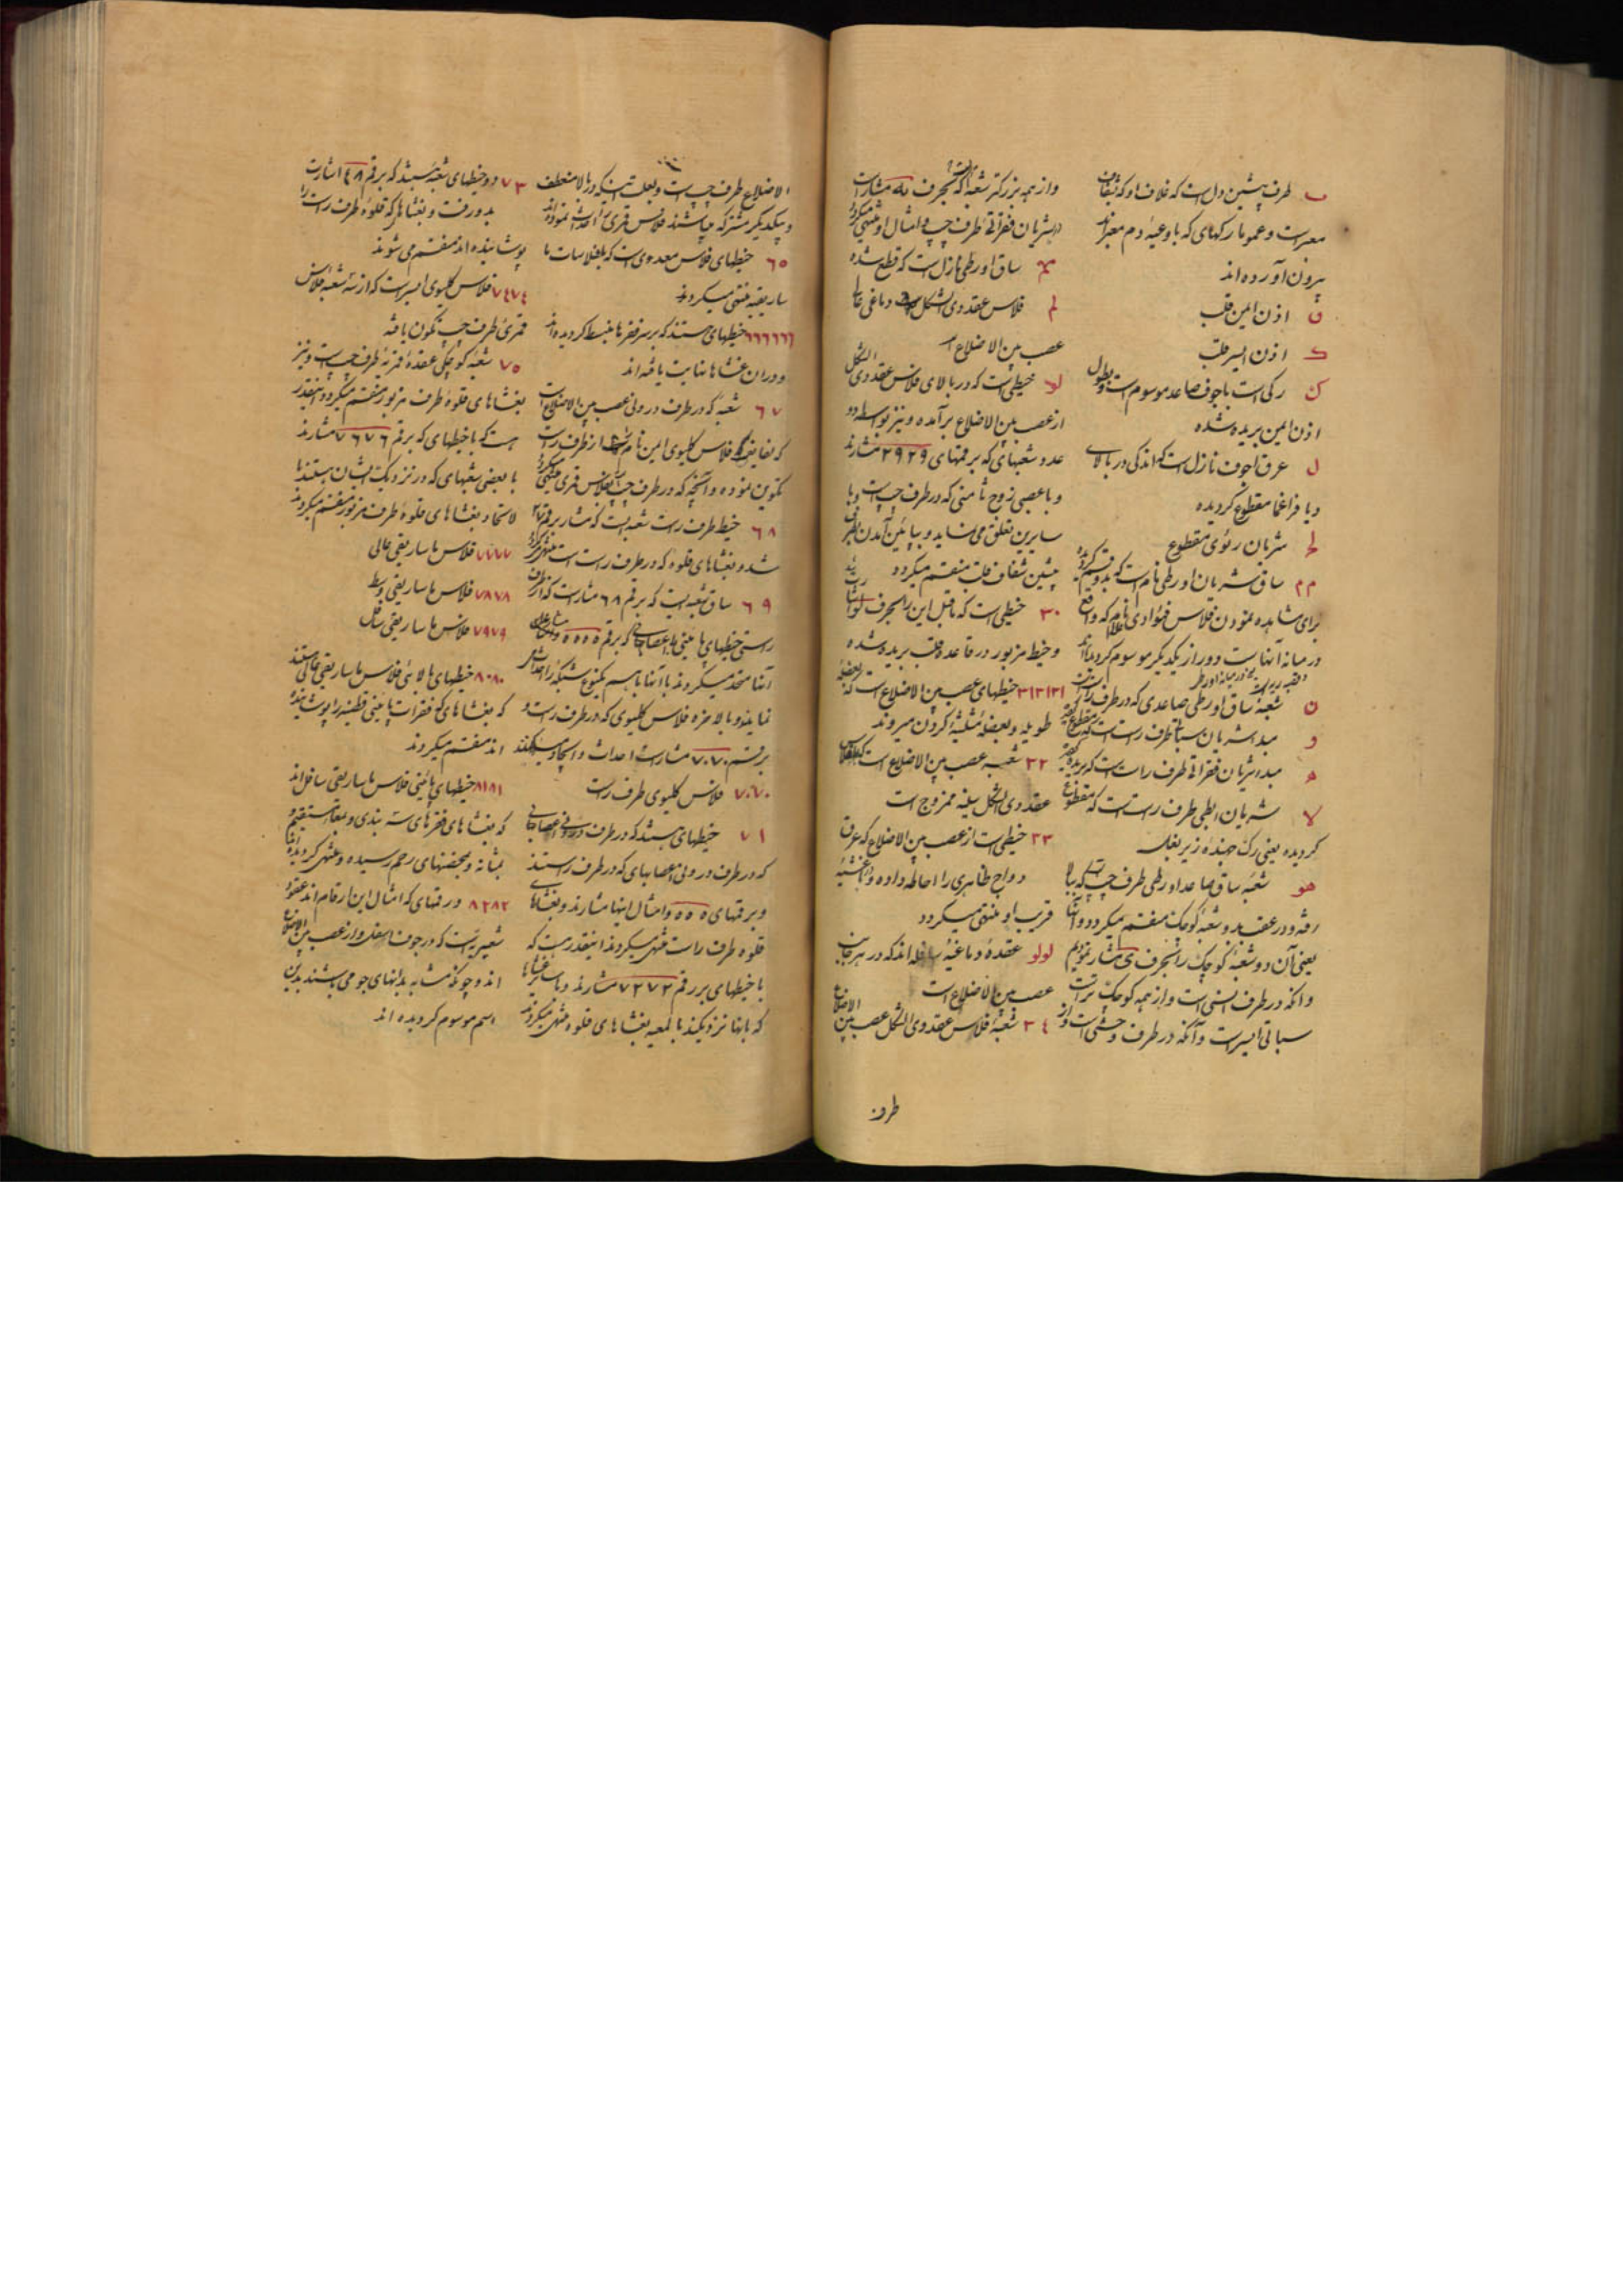 ب طرف پیشین دل است که غلاف او که شغاف
معبر است و عموما رکهای که باوعیهٔ دم معبراند
بیرون آورده اند
اذن ایمن قلب
ک اذن ایسر قلب
ک رکی است باجوف صاعد موسوم است و بطول
اذن ایمن بریده شده
ل عرق اجوف نازل است که اندکی در بالای
دیافراغما مقطوع کردیده
شریان رئوی مقطوع
م م ساق شریان اورطی نام است که بدو قسم کردیده
برای مشاهده نمودن فلاس فؤادی که واقع
در میانه اینها است دور از یکدیکر موسوم کردیده اند
ن شعبهٔ ساق اورطی صاعدی که در طرف راست
و مبدا شریان سباتی طرف راست است که مقطوع
ه مبدا شریان فقراتی طرف راست است که بریده
لا شریان ابطی طرف راست است که مقطوع
کردیده یعنی رک جهندهٔ زیر بغل
هو شعبهٔ ساق صاعد اورطی طرف چپ که ببالا
رفته و در عقب بدو شعبهٔ کوچک منقسم میکردد و آنها
یعنی آن دو شعبهٔ کوچک را بحرف ی مشار نمودیم
و آنکه در طرف انسی است و از همه کوچک تر است
سباتی ایسر است و آنکه در طرف وحشی است و از
و از همه بزرکتر شعبهٔ که بحرف مشار است
شریان فقراتی طرف چپ و امثال او منتهی میکردد
ساق اورطی نازل است که قطع شده
فلاس عقدوی الشکل دماغی
عصب بین الاضلاع
لو خیطی است که در بالای فلاس عقدوی الشکل
از عصب بین الاضلاع برآمده و نیز بواسطه دو
عدد شعبهای که برقمهای ۲۹ ۲۹ مشارند
و با عصبی زوج ثامنی که در طرف چپ است و با
سایرین تعلق می نماید و بپائین آمدن بطرف
پیشین شغاف قلب منقسم میکردد
۳۰ خیطی است که ماقبل این را بحرف
و خیط مزبور در قاعدهٔ قلب بریده شده
۳۱ ۳۱ ۳۱ خیطهای عصب بین الاضلاع است که بعضله
طویله و بعضلهٔ مثلثیهٔ کردن میروند
۳۲ شعبه عصب بین الاضلاع است که بفلاس
عقدوی الشکل سینه ممزوج است
۳۳ خیطی است از عصب بین الاضلاع که عرق
دواج ظاهری را احاطه داده و باغشیهٔ
قریب او منتهی میکردد
لولو عقدهٔ دماغیهٔ سافله اند که در هر جانب
عصب بین الاضلاع است
۳٤ شعبهٔ فلاس عقدوی الشکل عصب بین الاضلاع
طرف
الاضلاع طرف چپ است و بعلت اینکه در بالا منعطف
و بیکدیکر مشترکه میباشند فلاس قمری را احداث نموده اند
٦٥ خیطهای فلاس معدوی است که بفلاسات ما
ساریقیه منتهی میکردند
٦٦٦٦٦٦ خیطهای هستند که بر سر فقرها منبسط کردیده اند
و در ان غشاها نهایت یافته اند
٦٧ شعبه که در طرف درونی عصب بین الاضلاع است
که بفایفه فلاس کلیوی ایمن نام است از طرف راست
تکوین نموده و آنچه که در طرف چپ است بفلاس قمری منتهی میکردد
٦٨ خیط طرف راست شعبه ایست که مشار برقم
شده و بغشاهای قلوه که در طرف راست است منتهی میکردد
٦٩ ساق شعبه ایست که برقم ٦٨ مشار است که از طرف
راستی خیطهای پائینی با اعصابهای که برقم ٥٥٥٥
آنها متحد میکردند با آنها باهم یکنوع شبکه را احداث
نمایند و بالاخره فلاس کلیوی که در طرف راست و
برقم ۷۰ ۷۰ مشار است احداث و ایجاد میکنند
۷۰ ۷۰ فلاس کلیوی طرف راست
۷۱ خیطهای هستند که در طرف درونی اعصابهای
که در طرف درونی اعصابهای که در طرف راستند
و برقمهای ٥٥٥ و امثال اینها مشارند و بغشاهای
قلوه طرف راست منتهی میکردند اینقدر هست که
با خیطهای بر رقم ۷۲ ۷۲ مشارند و با سایر خیطها
که بانها نزدیکند بالمعیه بغشاهای قلوه منتهی میکردند
۷۳ دو خیطهای شعبه هستند که برقم ٤٨ اشارت
بدو رفت و بغشاهای که قلوهٔ طرف راست را
پوشانیده اند منقسم می شوند
۷٤ ۷٤ فلاس کلیوی ایسر است که از سه شعبه فلاس
قمری طرف چپ تکون یافته
۷٥ شعبهٔ کوچکی عقدهٔ قمریهٔ طرف چپ است و نیز
بغشاهای قلوهٔ طرف مزبور منقسم میکردد و اینقدر
هست که با خیطهای که برقم ۷٦ ۷٦ مشارند
با بعضی شعبهای که در نزدیکیت ایشان هستند با
لاتحاد بغشاهای قلوهٔ طرف مزبور منقسم میکردند
۷۷۷۷ فلاس ماساریقی عالی
۷۸ ۷۸ فلاس ماساریقی وسط
۷۹ ۷۹ فلاس ماساریقی سافل
۸۰ ۸۰ خیطهای بالائی فلاس ماساریقی عالی هستند
که بغشاهای که فقرات پائینی قطنیه را پوشانیده
اند منقسم میکردند
۸۱ ۸۱ خیطهای پائینی فلاس ماساریقی سافل اند
که بغشاهای فقرهای سته بندی و بمعاء مستقیم و
بمثانه و بخصیتهای رحم رسیده و منتهی کردیده اند
۸۲ ۸۲ و رقمهای که امثال این ارقام اند عقود
شعیریست که در جوف اسفل و از عصب بین الاضلاع
اند و چونکه مشابه بدانهای جو می باشند بدین
اسم موسوم کردیده اند